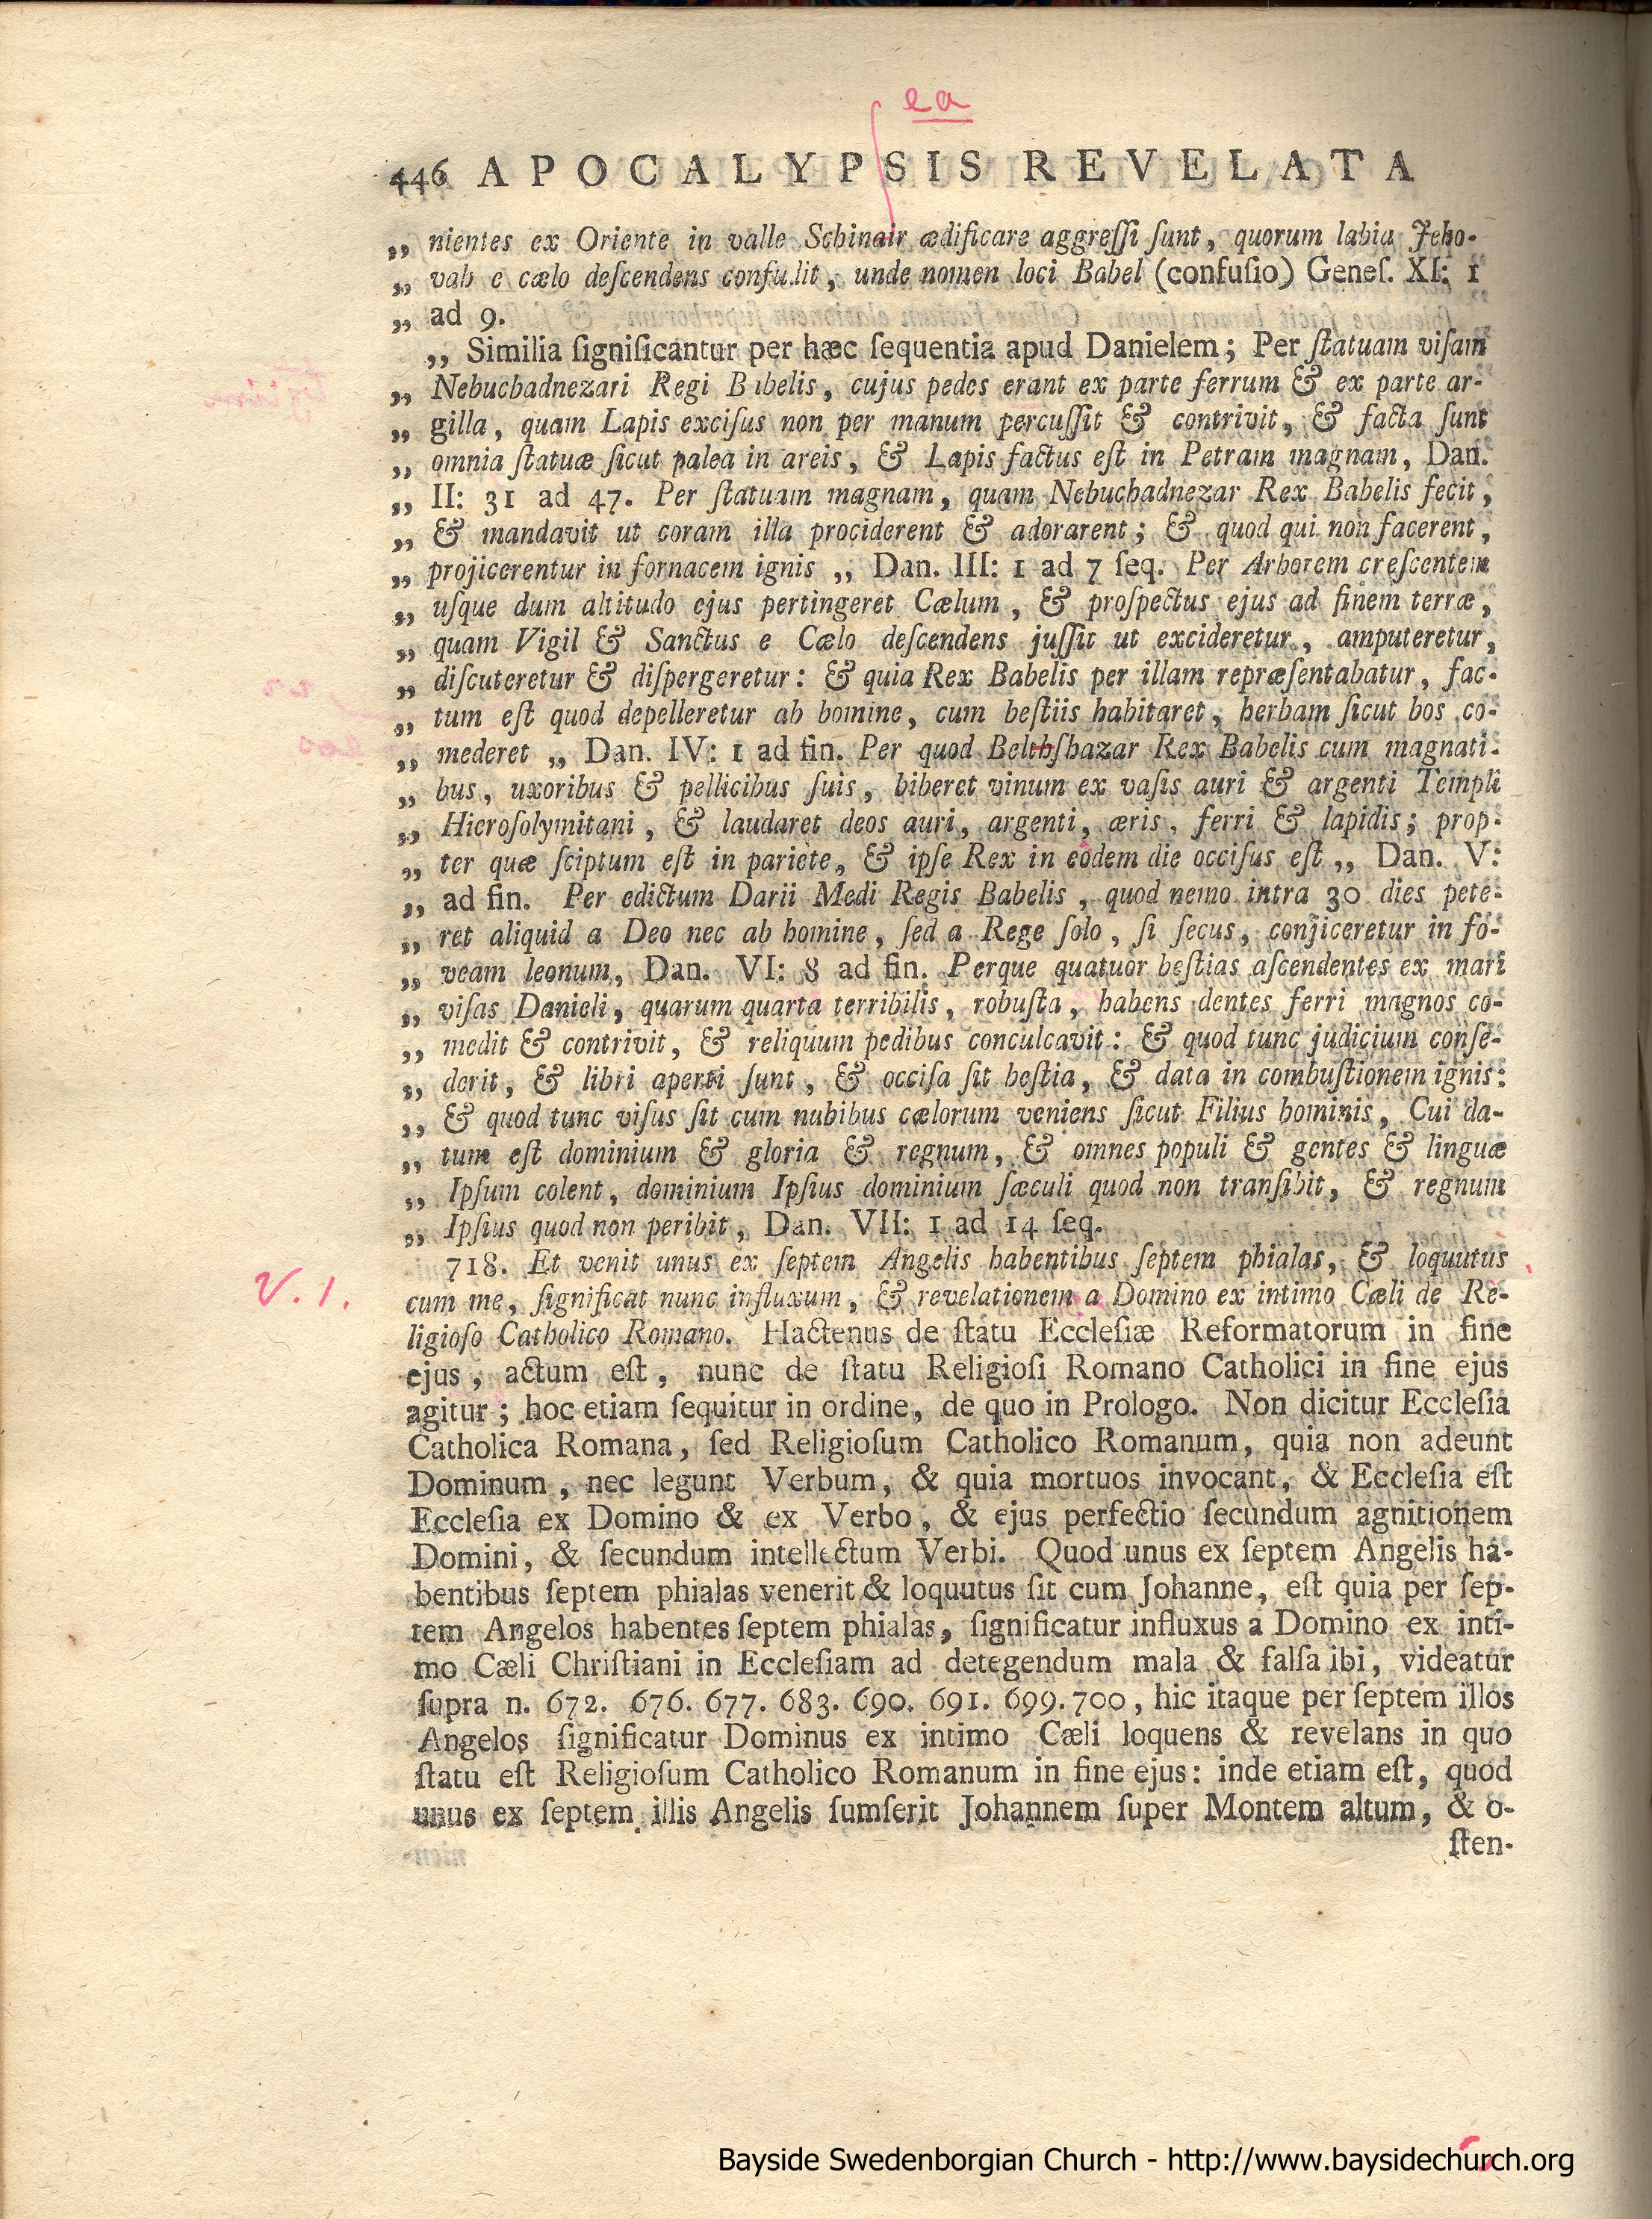 ea
446 APOCALYPSIS REVELATA
„ nientes ex Oriente in valle Schinair ædificare aggreſſi ſunt, quorum labia Jeho-
„ vah e cælo deſcendens confudit, unde nomen loci Babel (confuſio) Geneſ. XI: 1
„ ad 9.
„ Similia ſignificantur per hæc ſequentia apud Danielem; Per ſtatuam viſam
„ Nebuchadnezari Regi Babelis, cujus pedes erant ex parte ferrum & ex parte ar-
„ gilla, quam Lapis exciſus non per manum percuſſit & contrivit, & facta ſunt
„ omnia ſtatuæ ſicut palea in areis, & Lapis factus eſt in Petram magnam, Dan.
„ II: 31 ad 47. Per ſtatuam magnam, quam Nebuchadnezar Rex Babelis fecit,
„ & mandavit ut coram illa prociderent & adorarent; & quod qui non facerent,
„ projicerentur in fornacem ignis „ Dan. III: 1 ad 7 ſeq. Per Arborem creſcentem
„ uſque dum altitudo ejus pertingeret Cælum, & proſpectus ejus ad finem terræ,
„ quam Vigil & Sanctus e Cælo deſcendens juſſit ut excideretur, amputeretur,
„ diſcuteretur & diſpergeretur: & quia Rex Babelis per illam repræſentabatur, fac-
„ tum eſt quod depelleretur ab homine, cum beſtiis habitaret, herbam ſicut bos co-
„ mederet „ Dan. IV: 1 ad fin. Per quod Belthſhazar Rex Babelis cum magnati-
„ bus, uxoribus & pellicibus ſuis, biberet vinum ex vaſis auri & argenti Templi
„ Hieroſolymitani, & laudaret deos auri, argenti, æris, ferri & lapidis; prop-
„ ter quæ ſciptum eſt in pariete, & ipſe Rex in eodem die occiſus eſt „ Dan. V:
„ ad fin. Per edictum Darii Medi Regis Babelis, quod nemo intra 30 dies pete-
„ ret aliquid a Deo nec ab homine, ſed a Rege ſolo, ſi ſecus, conjiceretur in fo-
„ veam leonum, Dan. VI: 8 ad fin. Perque quatuor beſtias aſcendentes ex mari
„ viſas Danieli, quarum quarta terribilis, robuſta, habens dentes ferri magnos co-
„ medit & contrivit, & reliquum pedibus conculcavit: & quod tunc judicium conſe-
„ derit, & libri aperti ſunt, & occiſa ſit beſtia, & data in combuſtionem ignis:
„ & quod tunc viſus ſit cum nubibus cælorum veniens ſicut Filius hominis, Cui da-
„ tum eſt dominium & gloria & regnum, & omnes populi & gentes & linguæ
„ Ipſum colent, dominium Ipſius dominium ſæculi quod non tranſibit, & regnum
„ Ipſius quod non peribit, Dan. VII: 1 ad 14 ſeq.
718. Et venit unus ex ſeptem Angelis habentibus ſeptem phialas, & loquutus
V. 1.
cum me, ſignificat nunc influxum, & revelationem a Domino ex intimo Cæli de Re-
ligioſo Catholico Romano. Hactenus de ſtatu Eccleſiæ Reformatorum in fine
ejus, actum eſt, nunc de ſtatu Religioſi Romano Catholici in fine ejus
agitur; hoc etiam ſequitur in ordine, de quo in Prologo. Non dicitur Eccleſia
Catholica Romana, ſed Religioſum Catholico Romanum, quia non adeunt
Dominum, nec legunt Verbum, & quia mortuos invocant, & Eccleſia eſt
Eccleſia ex Domino & ex Verbo, & ejus perfectio ſecundum agnitionem
Domini, & ſecundum intellectum Verbi. Quod unus ex ſeptem Angelis ha-
bentibus ſeptem phialas venerit & loquutus ſit cum Johanne, eſt quia per ſep-
tem Angelos habentes ſeptem phialas, ſignificatur influxus a Domino ex inti-
mo Cæli Chriſtiani in Eccleſiam ad detegendum mala & falſa ibi, videatur
ſupra n. 672. 676. 677. 683. 690. 691. 699. 700, hic itaque per ſeptem illos
Angelos ſignificatur Dominus ex intimo Cæli loquens & revelans in quo
ſtatu eſt Religioſum Catholico Romanum in fine ejus: inde etiam eſt, quod
unus ex ſeptem illis Angelis ſumſerit Johannem ſuper Montem altum, & o-
ſten-
Bayside Swedenborgian Church - http://www.baysidechurch.org